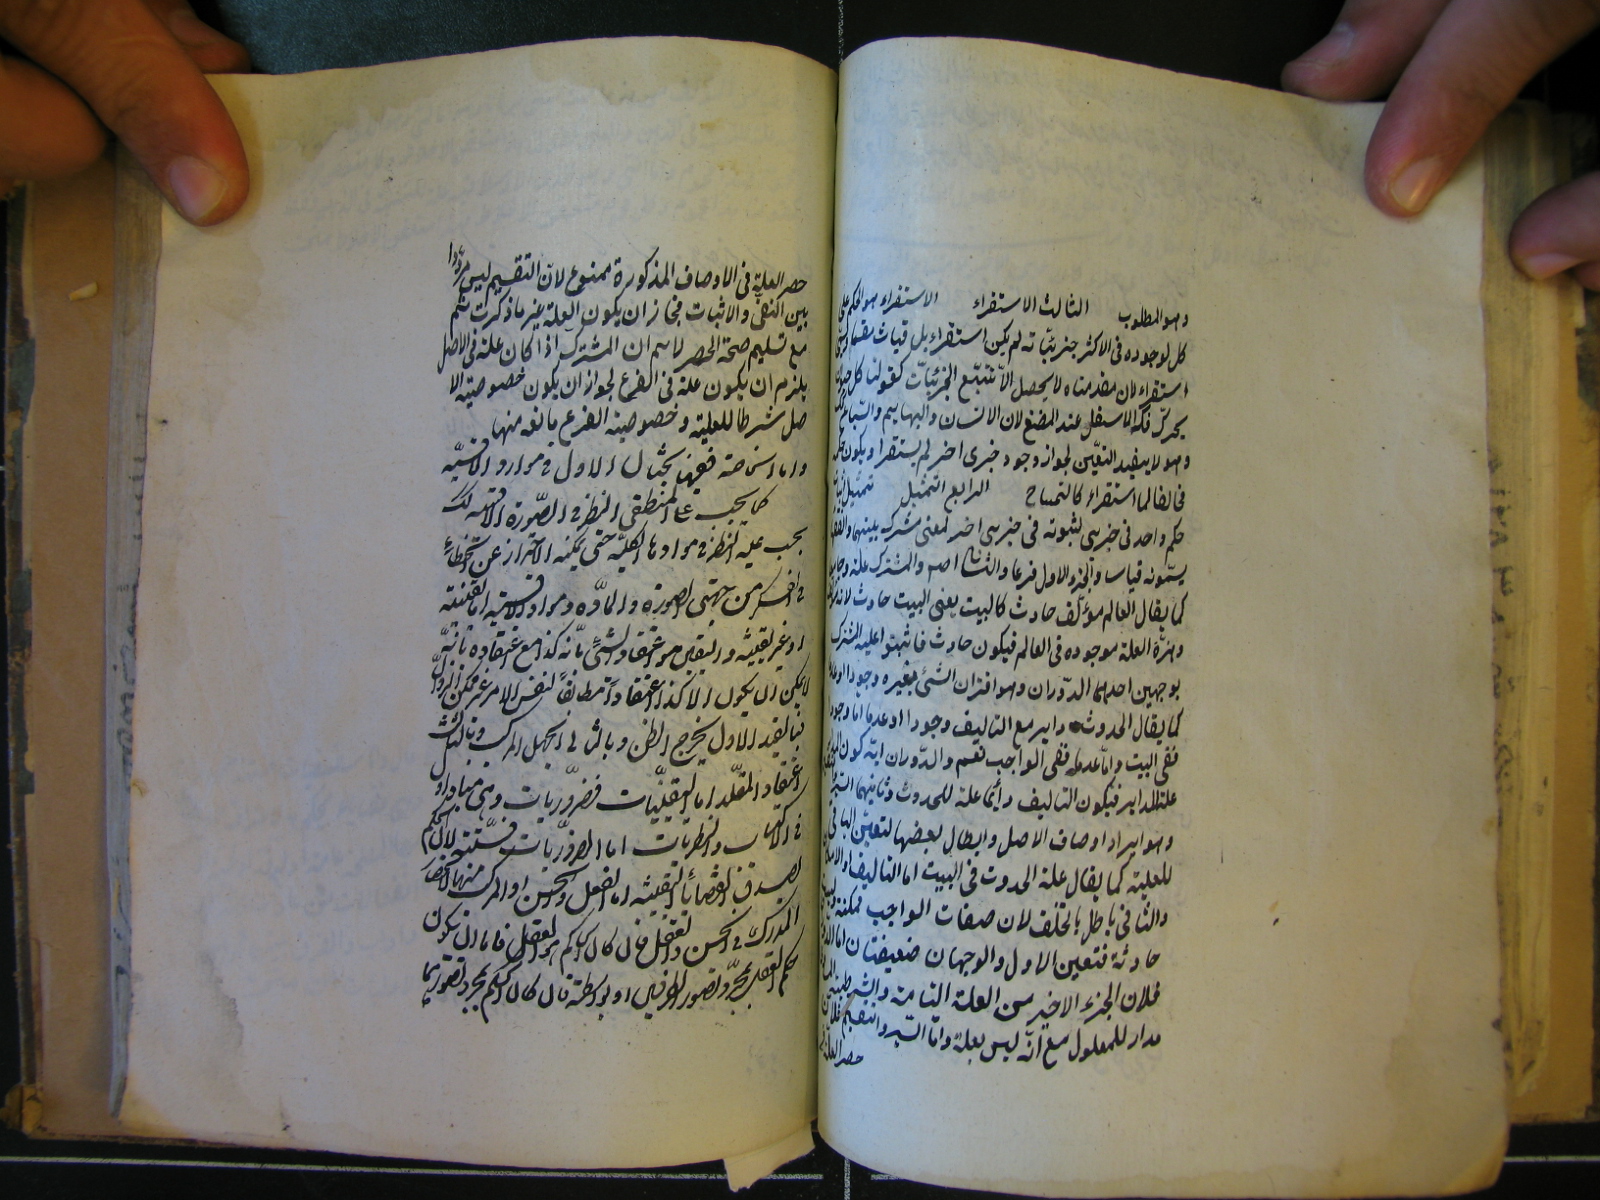 وهو المطلوب الثالث الاستقراء الاستقراء هو الحكم على
كل لوجوده في الاكثر جزئياته لم يكن استقراء بل قياسا مقسما ويسمى
استقراء لان مقدمتاه لا يحصل الا بتتبع الجزئيات كقولنا كل حيوان
يحرك فكه الاسفل عند المضغ لان الانسان والبهايم والسباع كذلك
وهو لا يفيد اليقين لجواز وجود جزئى اخر لم يستقرا ويكون حكمه
مخالفا لما استقراء كالتمساح الرابع التمثيل تمثيل اثبات
حكم واحد في جزيى لثبوته في جزيى اخر لمعنى مشترك بينهما والفقهاء
يسمونه قياسا والجزء الاول فرعا والثانى اصلا والمشترك علة وجامعا
كما يقال العالم مؤلف حادث كالبيت يعنى البيت حادث لانه مؤلف
وهذه العلة موجوده في العالم فيكون حادث فاثبتوا علية المشترك
بوجهين احدهما الدوران وهو اقتران الشئ بغيره وجودا وعدما
كما يقال الحدوث داير مع التاليف وجودا وعدما اما وجودا
ففى البيت واما عدما ففى الواجب نعم والدوران اية كون المدار
علة للداير فيكون التاليف دائما علة للحدوث وثانيهما السبر
وهو ايراد اوصاف الاصل وابطال بعضها لتعين الباقى
للعلية كما يقال علة الحدوث في البيت اما التاليف او الامكان
والثانى باطل بالتخلف لان صفات الواجب ممكنة وليست
حادثة فتعين الاول والوجهان ضعيفان اما الدوران
فلان الجزء الاخير من العلة التامة والشرط المساوى
مدار للمعلول مع انه ليس بعلة واما السبر والتقسيم فلان
حصر العلة
حصر العلية في الاوصاف المذكورة ممنوع لان التقسيم ليس مرددا
بين النفى والاثبات فجاز ان يكون العلة غير ما ذكرت ثم
مع تسليم صحة الحصر لا نسلم ان المشترك اذا كان علة في الاصل
يلزم ان يكون علة في الفرع لجواز ان يكون خصوصية الا
صل شرطا للعلية وخصوصية الفرع مانعه منها
واما الخاتمة ففيها بحثان الاول في مواد الاقيسة
كما يجب على المنطقى النظر في الصورة الاقيسة كذلك
يجب عليه النظر في موادها الكلية حتى يمكنه الاحتراز عن الخطاء
في الفكر من جهتى الصورة والمادة ومواد الاقيسة اما يقينية
او غير يقينية واليقين هو اعتقاد الشئ بانه كذا مع اعتقاده بانه
لا يمكن ان يكون الا كذا اعتقادا مطابقا لنفس الامر غير ممكن الزوال
فبالقيد الاول يخرج الظن وبالثانى الجهل المركب وبالثالث
اعتقاد المقلد اما اليقينيات فضروريات وهى مباد اول
في الاكتساب ونظريات اما الضروريات فستة لان الحاكم
بصدق القضايا اليقينية اما العقل او الحس او المركب منهما لانحصار
المدرك في الحس والعقل فان كان الحاكم هو العقل فاما ان يكون
حكم العقل بمجرد تصور الطرفين او بواسطة فان كان الحكم بمجرد تصورهما